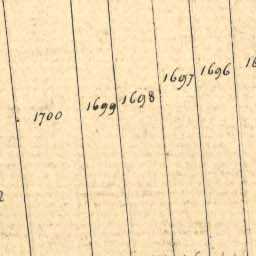 1700 1699 1698 1697 1696